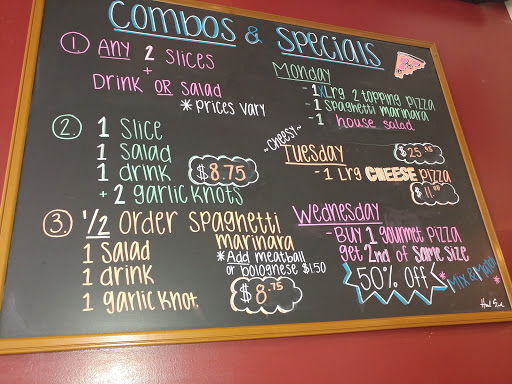 Combos & Specials
1 Any 2 Slices
+
Drink or salad
*Prices vary
2. 1 Slice
1 Salad
1 drink
+ 2 garlic knots
$8.75
3. 1/2 Order Spaghetti
marinara
1 Salad
1 drink
1 garlic knot
*Add meatball
or bolognese $1.50
$8.75
Monday
- 1 XLrg 2 topping pizza
- 1 spaghetti marinara
- 1 house salad
$25.
-Cheesy-
Tuesday
- 1 Lrg CHEESE pizza
$11.
Wednesday
- Buy 1 gourmet pizza
get 2nd of same size
50% Off
*Mix & Match*